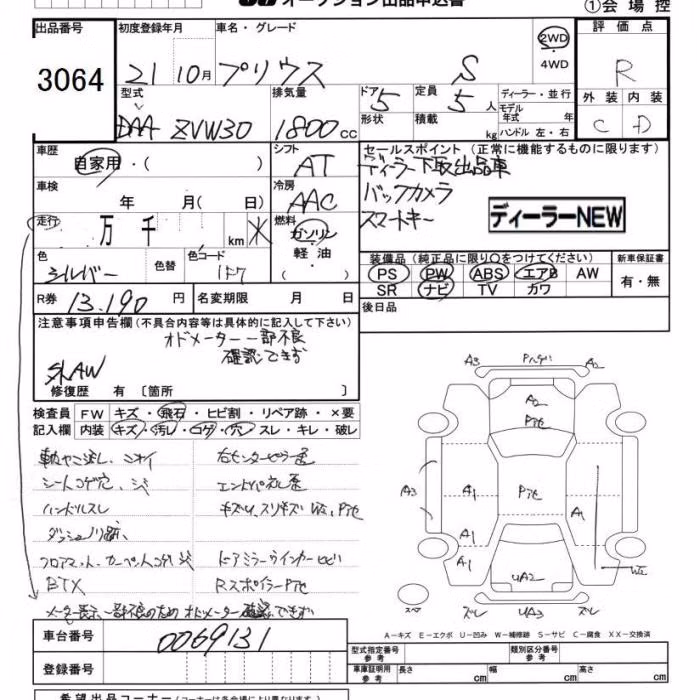 オークション出品申込書
①会場控
出品番号 初度登録年月 車名・グレード 評価点
3064 21 10月 プリウス S 2WD 4WD R
外装 内装
C D
型式 排気量 ドア 定員 ディーラー・並行
DAA ZVW30 1800cc 5 5人
形状 積載 kg モデル年式 年
ハンドル 左・右
車歴 シフト セールスポイント (正常に機能するものに限ります)
自家用・( ) AT ディーラー下取出品車
車検 冷房 バックカメラ
年 月( 日) AAC スマートキー
ディーラーNEW
走行 万 千 km 燃料
ガソリン
軽油・
( )
色 色替 色コード
シルバー 1F7
装備品 (純正品に限り○をつけてください) 新車保証書
PS PW ABS エアB AW 有・無
SR ナビ TV カワ
R券 13,190 円 名変期限 月 日 後日品
注意事項申告欄 (不具合内容等は具体的に記入して下さい)
オドメーター一部不良
確認できず
社外AW
修復歴 有 〔箇所 〕
検査員 FW キズ・飛石・ヒビ割・リペア跡・×要
記入欄 内装 キズ・汚レ・コゲ・穴・スレ・キレ・破レ
シートコゲ穴、
ハンドルスレ
ダッシュノリ跡、
フロアマット、カーペット
BTX
ドアミラーウインカーヒビ
Rスポイラー
メーター表示一部不良のためオドメーター確認できず
A3 A2
A2
A3 A1 A1
A1
A1
UA2
スペア ズレ UA3 ズレ
A－キズ E－エクボ U－凹み W－補修跡 S－サビ C－腐食 XX－交換済
車台番号 0069131
登録番号
型式指定番号 参考 類別区分番号 参考
車庫証明用 参考 長さ cm 幅 cm 高さ cm
希望出品コーナー (コーナーは各会場により異なります。)